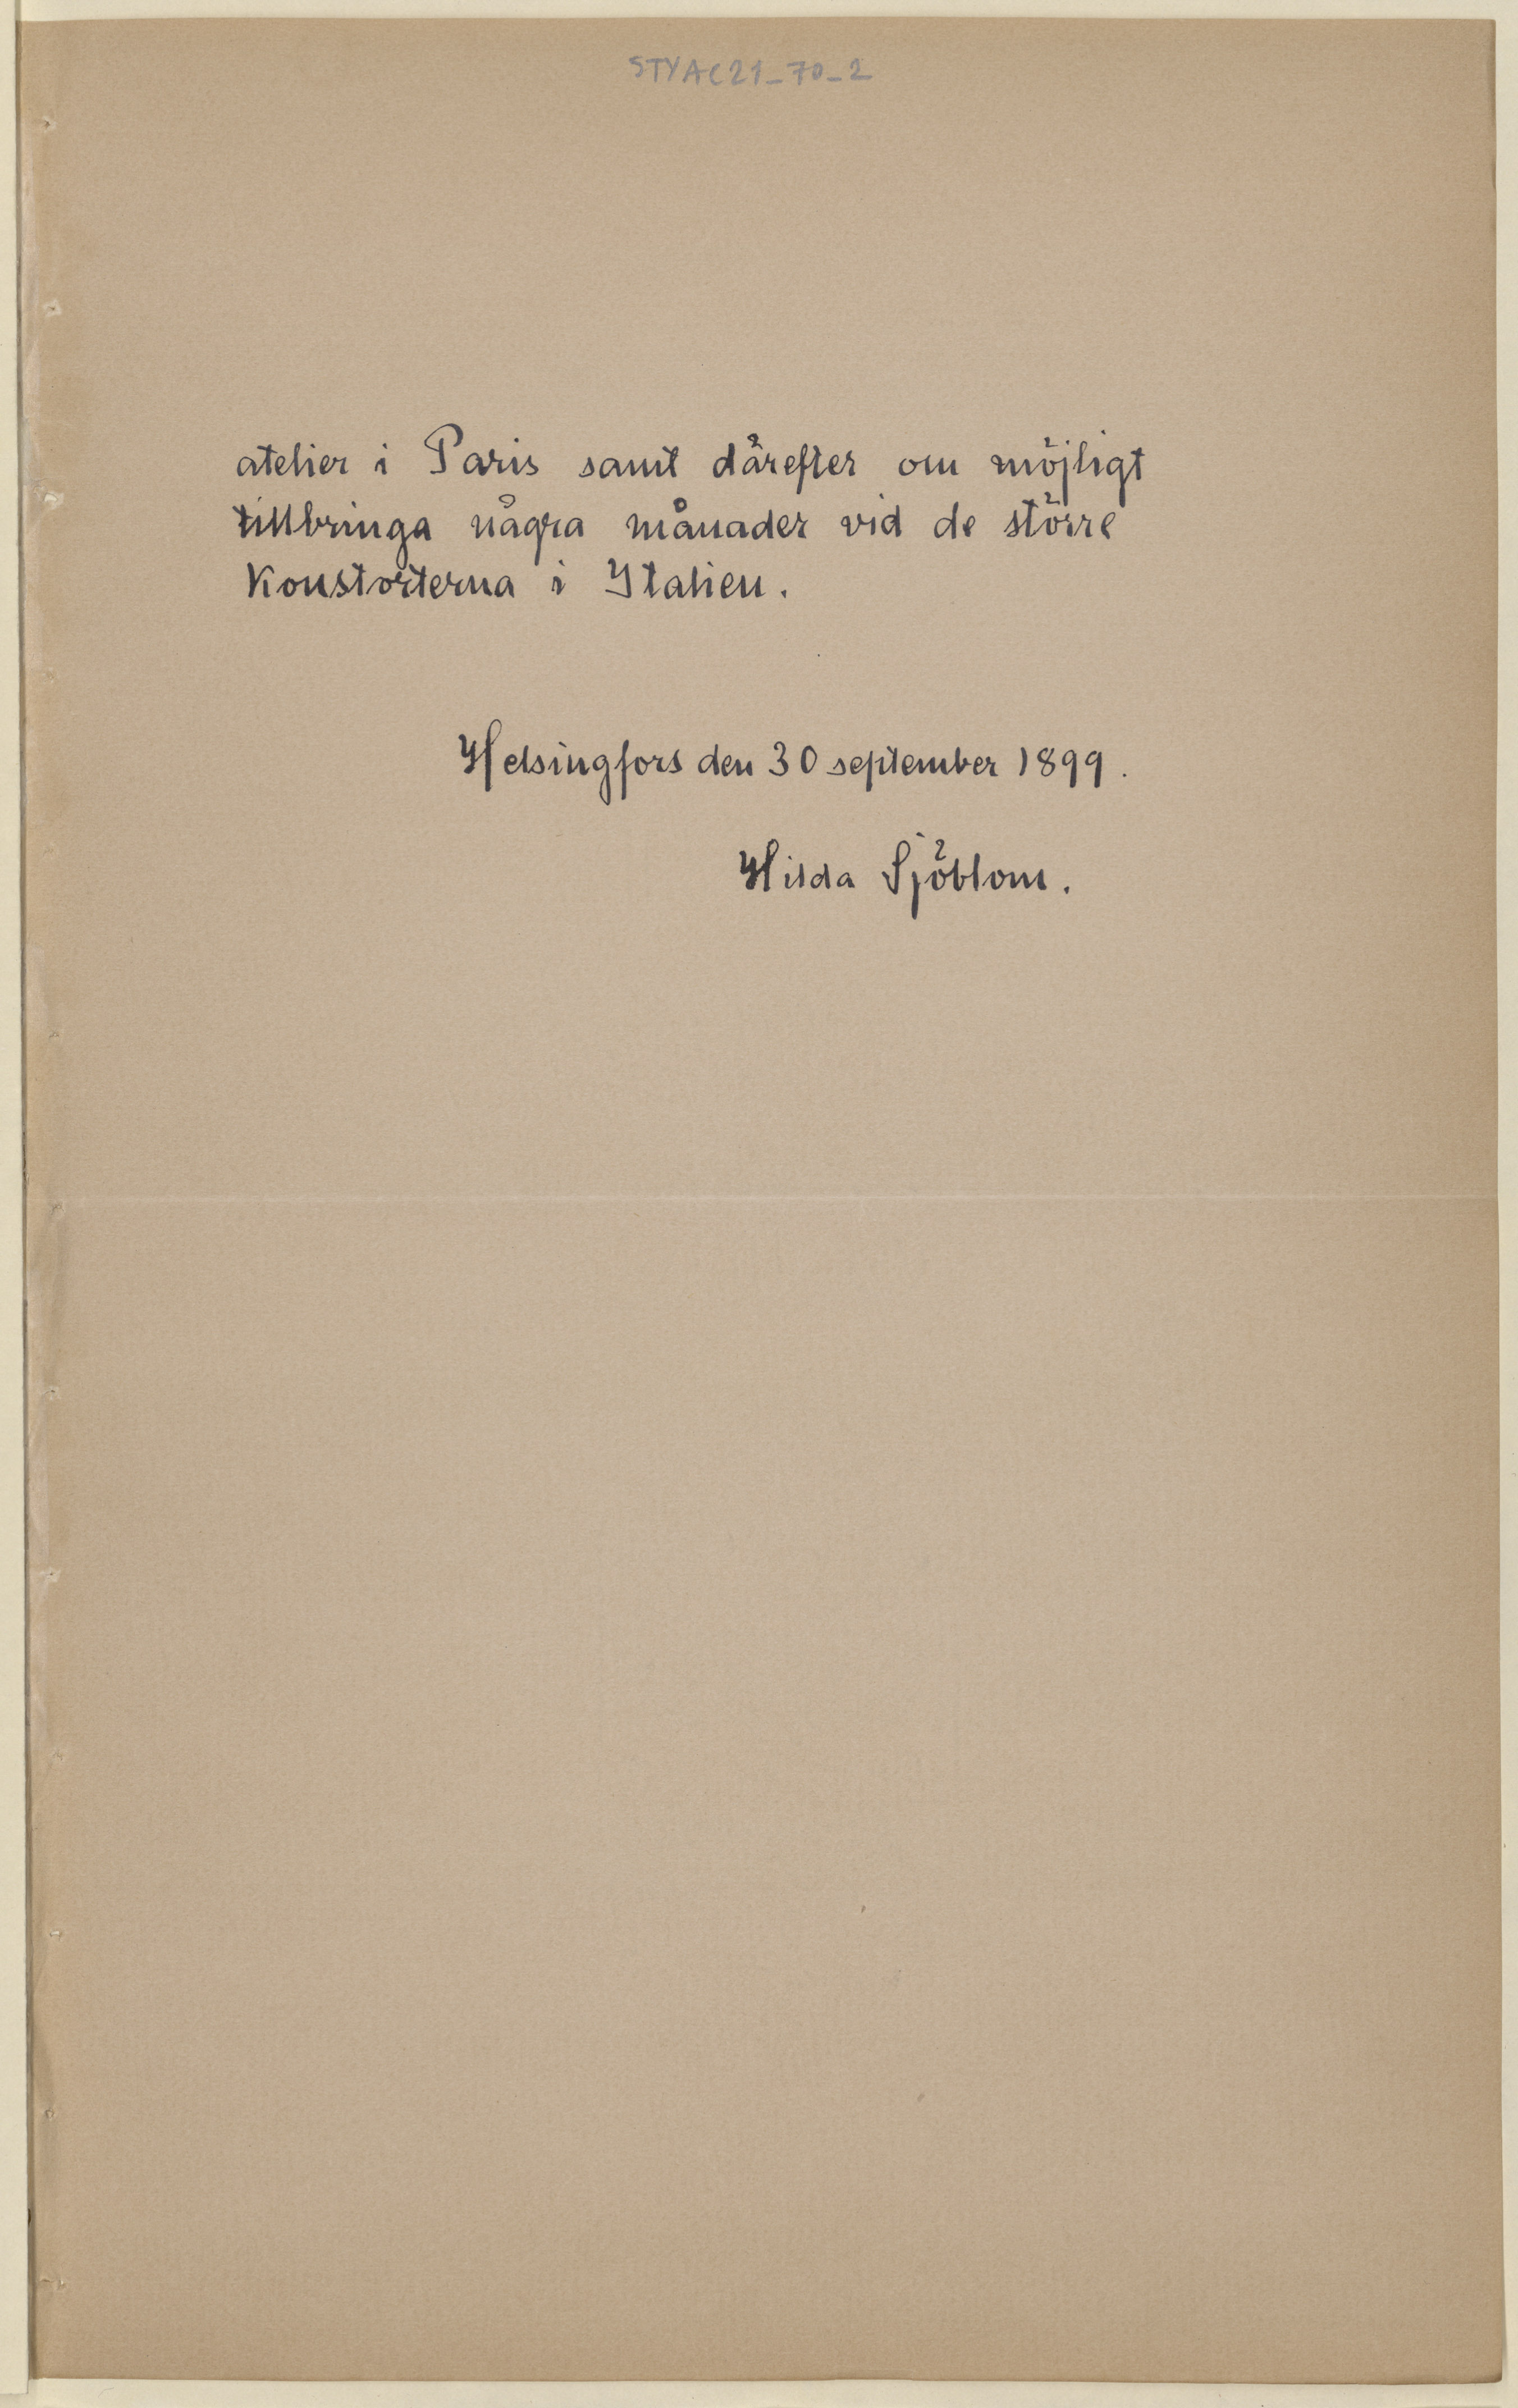 STYAC21_70_2
atelier i Paris samt därefter om möjligt
tillbringa några månader vid de större
konstorterna i Italien.
Helsingfors den 30 september 1899.
Hilda Sjöblom.